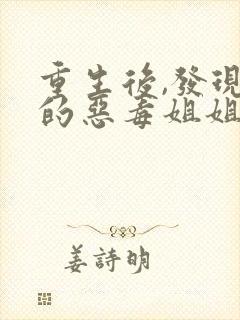 重生後,發現
的惡毒姐姐
姜詩明